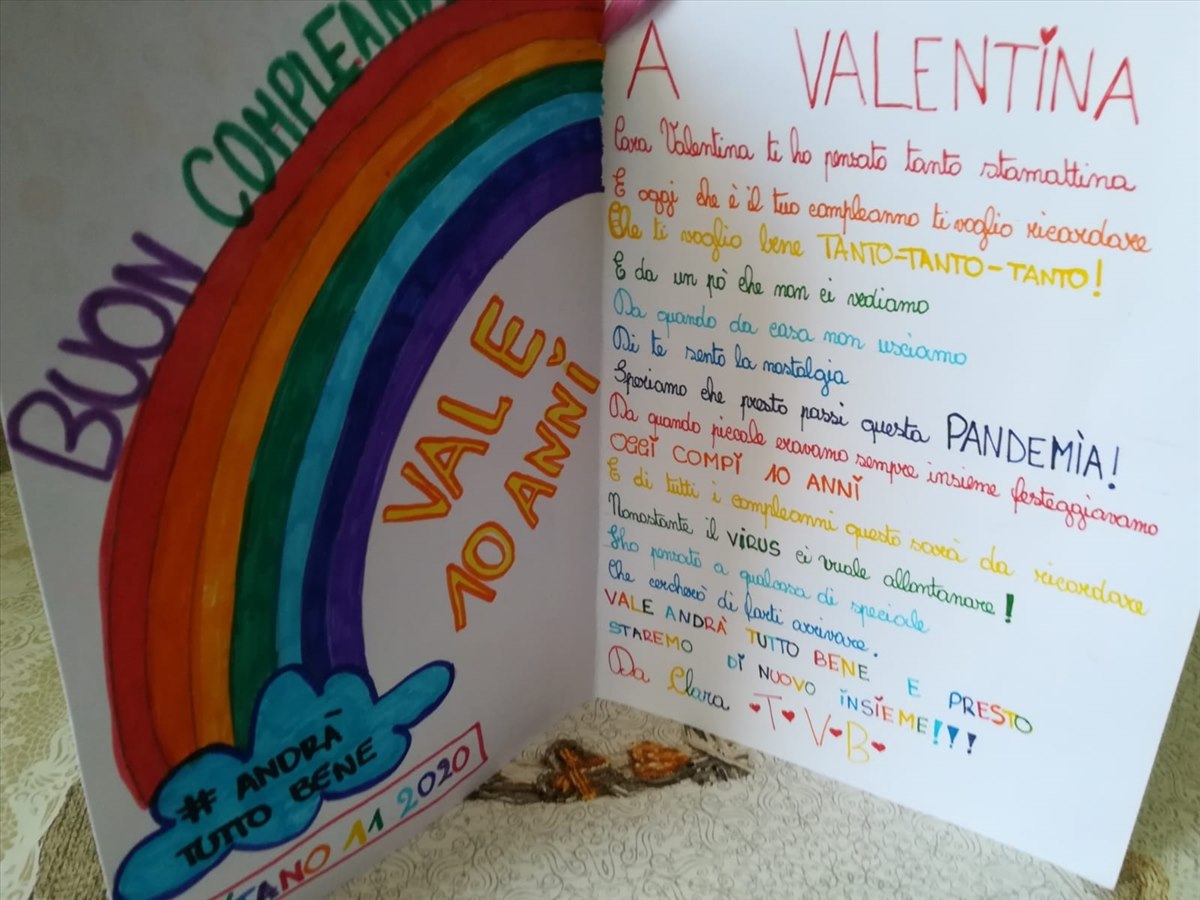 BUON COMPLEAN
VALE
10 ANNI
# ANDRÀ
TUTTO BENE
TANO 11 2020
A VALENTINA
Cara Valentina ti ho pensato tanto stamattina
E oggi che è il tuo compleanno ti voglio ricordare
Che ti voglio bene TANTO-TANTO-TANTO!
E da un pò che non ci vediamo
Da quando da casa non usciamo
Di te sento la nostalgia
Speriamo che presto passi questa PANDEMÌA!
Da quando piccole eravamo sempre insieme festeggiavamo
OGGI COMPI 10 ANNI
E di tutti i compleanni questo sarà da ricordare
Nonostante il VIRUS ci vuole allontanare!
Ho pensato a qualcosa di speciale
Che cercherò di farti arrivare.
VALE ANDRÀ TUTTO BENE E PRESTO
STAREMO DI NUOVO INSIEME!!!
Da Clara T V B